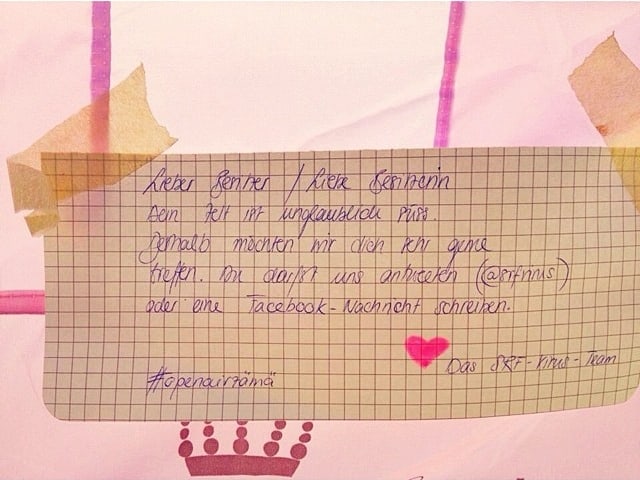 Lieber Besitzer / Liebe Besitzerin
Dein Zelt ist unglaublich süss.
Deshalb möchten wir dich sehr gerne
treffen. Du darfst uns antweeten (@srfvirus)
oder eine Facebook-Nachricht schreiben.
Das SRF-Virus-Team
#openairzämä